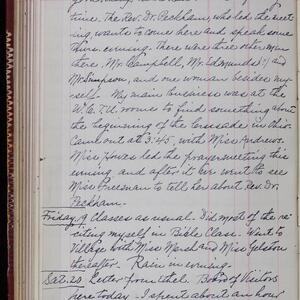 time. The Rev. Dr. Peckham, who led the meet-
ing, wants to come here and speak some
time. evening. There were three other men
there, Mr. Campbell, Mr. Edmunds (?) and
Mr. Simpson, and one woman besides my-
self. My main business was at the
W.C.T.U. rooms to find something about
the beginning of the Crusade in Ohio.
Came out at 3:45, with Miss Andrews.
Miss Howes led the prayer meeting this
evening and after it we went to see
Miss Freeman to tell her about Rev. Dr.
Peckham.
Friday, 19 Classes as usual. Did most of the re-
citing myself in Bible Class. Went to
Village with Miss Marsh and Miss Gelston
thereafter. Rain in evening.
Sat. 20. Letter from Ethel. Board of Visitors
here today. I spent about an hour